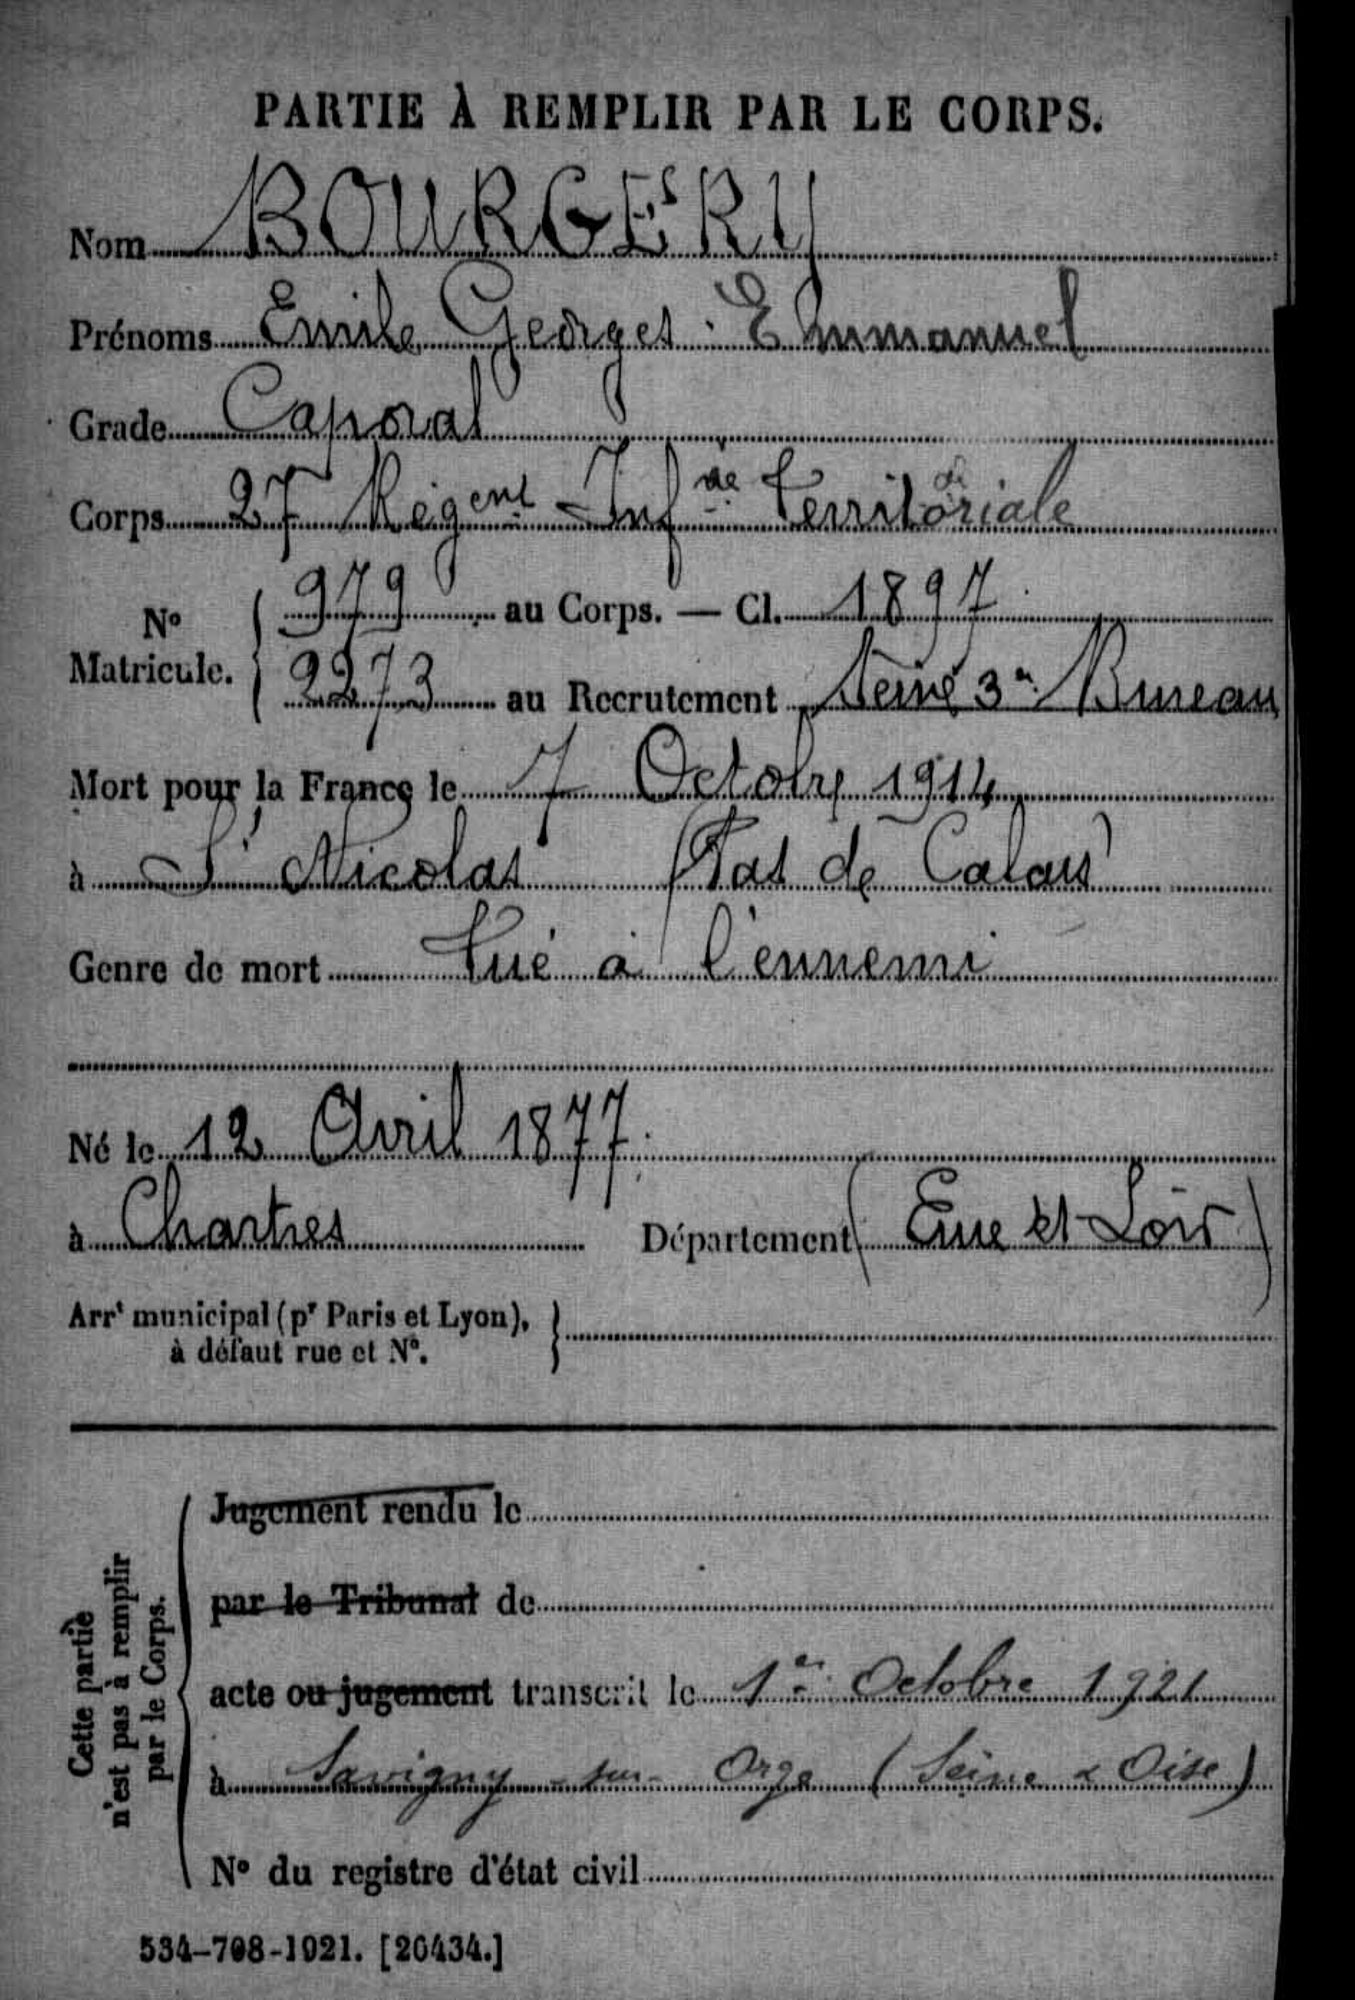 PARTIE À REMPLIR PAR LE CORPS.
Nom BOURGERY
Prénoms Emile Georges Emmanuel
Grade Caporal
Corps 27 Régent Infie Territoriale
No Matricule. 979 au Corps. — Cl. 1897
2273 au Recrutement Seine 3e Bureau
Mort pour la France le 7 Octobre 1914
à St Nicolas (Pas de Calais)
Genre de mort Tué à l'ennemi
Né le 12 Avril 1877
à Chartres Département (Eure et Loir)
Arrt municipal (pr Paris et Lyon),
à défaut rue et No.
Cette partie
n'est pas à remplir
par le Corps.
Jugement rendu le
par le Tribunal de
acte ou jugement transcrit le 1er Octobre 1921
à Savigny-sur-Orge (Seine & Oise)
No du registre d'état civil
534-708-1921. [20434.]